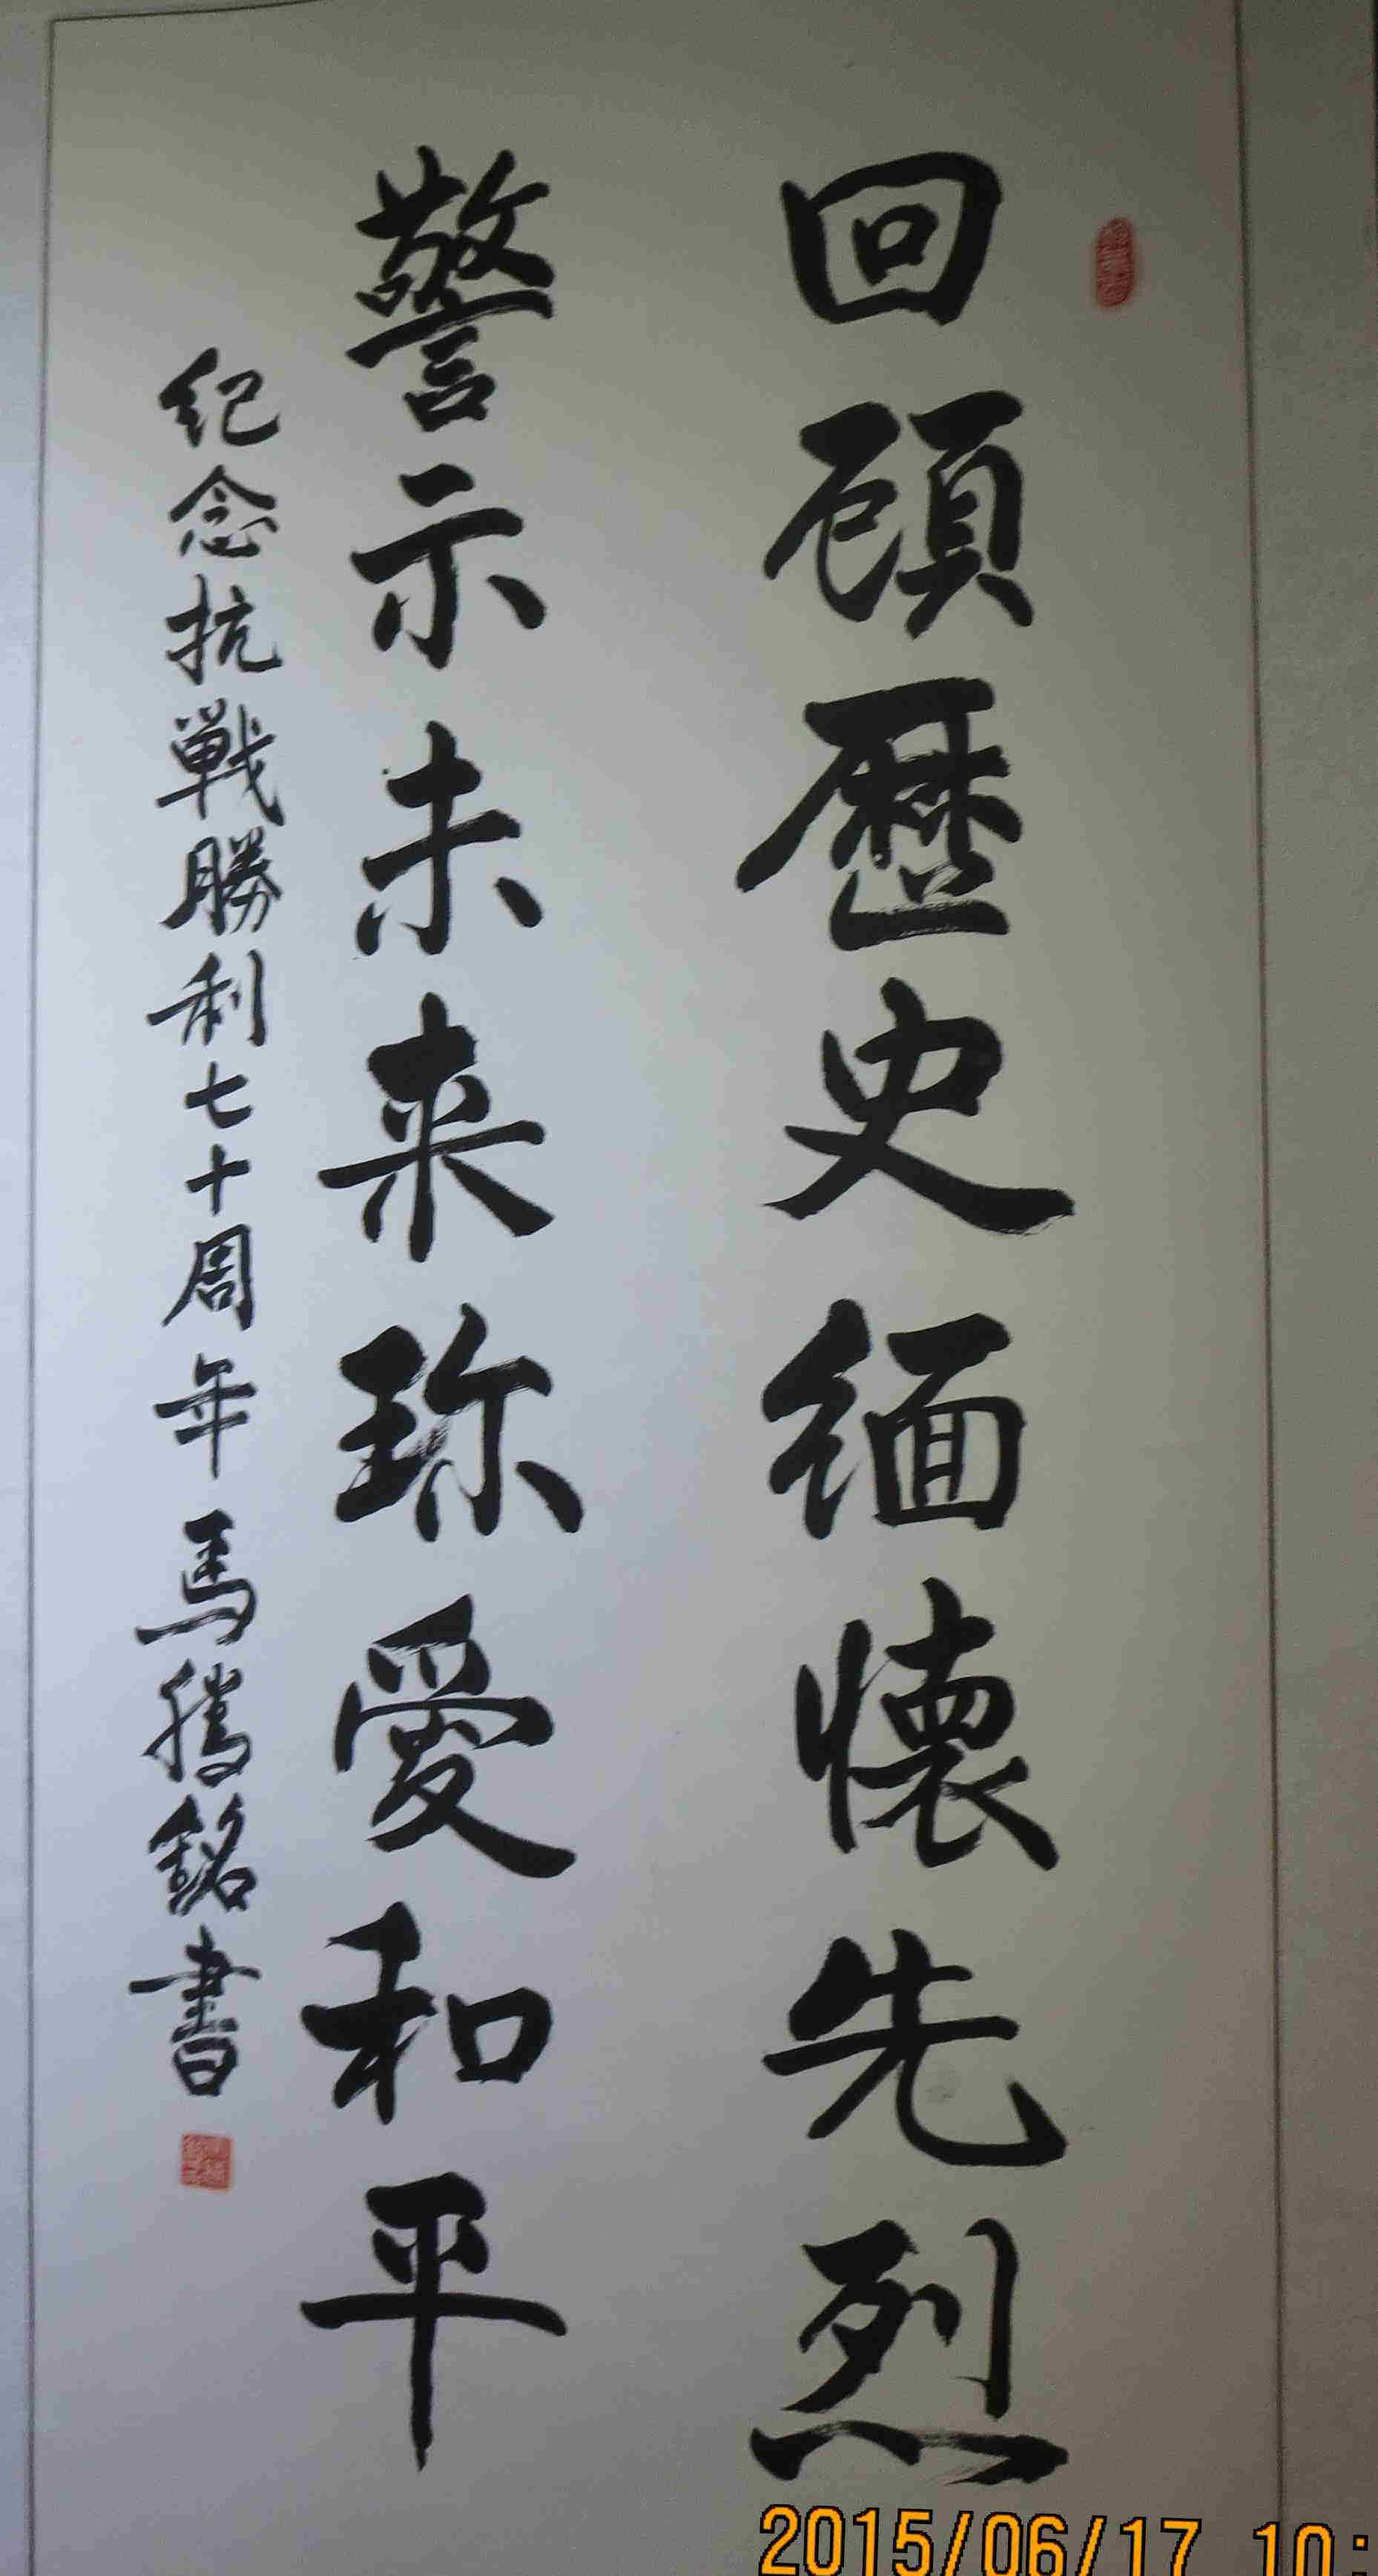 回顧歷史缅懷先烈
警示未来珎愛和平
纪念抗戦勝利七十周年馬騰銘書
2015/06/17 10: